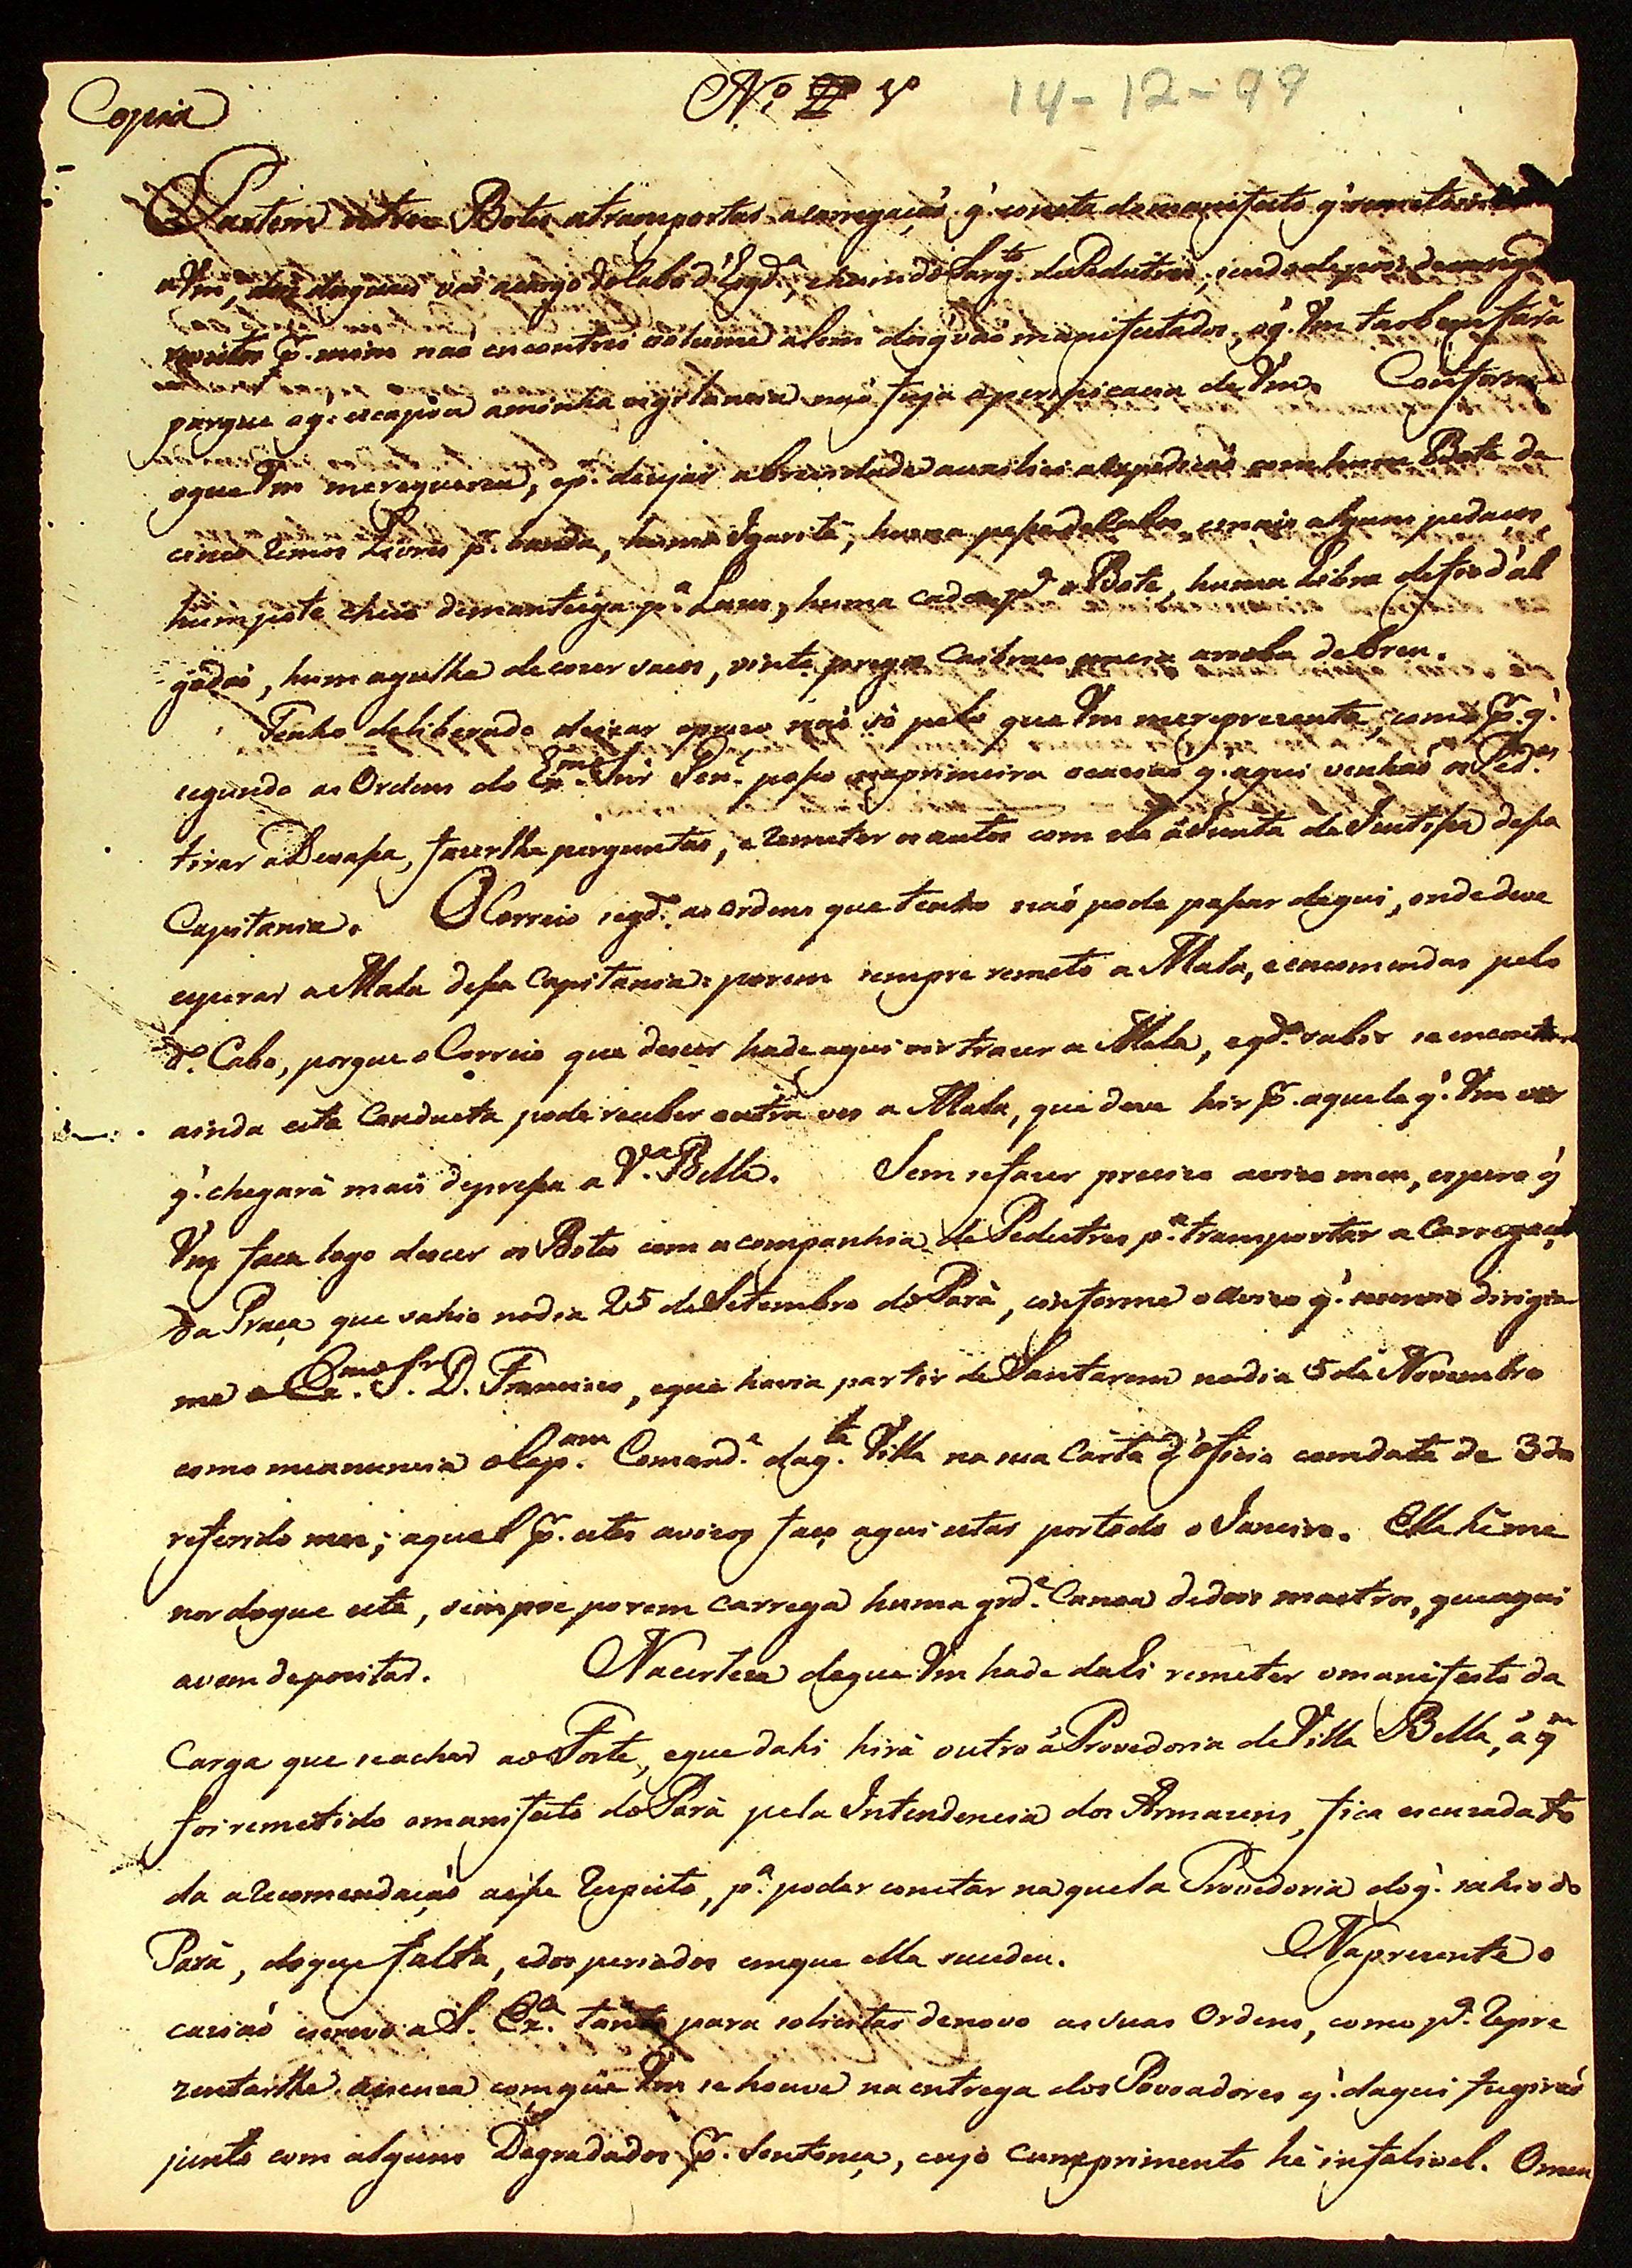 Copia
N.º 4º
14-12-99
Partem outros Botes a transportar a carregaçaõ q̃. consta do manifesto q̃ remeto
a Vm, dos daquem vaõ a cargo do Cabo d'Esqd.ª, e hum do Sarg.to de Pedestres; sendo depois de
revistos p̃. mim naõ encontrei volume alem dos q̃ vaõ manifestados, o q̃. Vm taobem fará
porque o q̃. escapou a minha vigilancia naõ fuja a perspicacia de Vm. Conforme
o que Vm me requereu, e p.ª desejar a brevidade auxiliei a expediçaõ com hum Bote de
cinco remos livres p̃. banda, huma Igarité, huma pessa de Cabos, e mais alguns pedaços
hum pote cheio de manteiga p.ª Luzes, huma p.ª o Bote, huma Libra de fio d'al
godaõ, hum agulha de cozer sacos, vinte pregos Caibraes e meia arroba de breu.
Tenho deliberado deixar o prezo naõ só pelo que Vm me representa, como p̃. q̃.
segundo as Ordens do Ex.mo Snr̃ Gen.l posso na primeira occasiaõ q̃. aqui venhaõ os Ped.es
tirar a Devassa, fazerlhe perguntas, e remeter os autos com elle á Junta de Justissa dessa
Capitania. O Correio segd.º as ordens que tenho naõ pode passar daqui, onde deve
esperar a Mala dessa Capitania: porem sempre remeto a Mala, e encomendas pelo
d.º Cabo, porque o Correio que descer hade aqui vir trazer a Mala, e qd.º subir se encontrar
ainda esta Conducta pode receber outra vez a Mala, que deve hir p̃. aquele q̃. Vm ver
q̃. chegará mais depressa a V.ª Bella. Sem se fazer precizo avizo meu, espero q̃
Vm faça logo descer os Botes com a companhia de Pedestres p.ª transportar a Carregaçaõ
da Praça que sahio no dia 25 de Setembro do Pará, conforme o avizo q̃. dirigio
me o Ex.mo Sr. D. Francisco, e que havia partir de Santarem no dia 5 de Novembro
como me anuncia o Cap.am Comand.e daq.ta Villa na sua Carta d'oficio com data de 3 do
referido mez; a qual p̃. estes avizos faço aqui estar por todo o Janeiro. Ella hé me
nor do que esta, sempre porem carrega huma grd.e Canoa de dous mastros, que aqui
a vem depositar. Na certeza de que Vm hade dahi remeter o manifesto da
Carga que se achar ao Forte, e que dahi hirá outro á Provedoria de Villa Bella, á q̃m
foi remetido o manifesto do Pará pela Intendencia dos Armazens, fica escuzada to
da a recomendaçaõ a esse respeito, p.ª poder constar naquela Provedoria do q̃. sahio do
Pará, do que falta, e dos periodos em que ella sucedeu. Na prezente o
casiaõ escrevo a S. Ex.ª tanto para solicitar de novo as suas Ordens, como p.ª repre
zentarlhe com que Vm se houve na entrega dos Povoadores q̃. daqui fugiraõ
junto com alguns Degradados p̃. Sentença, cujo cumprimento hé infalivel. O meu